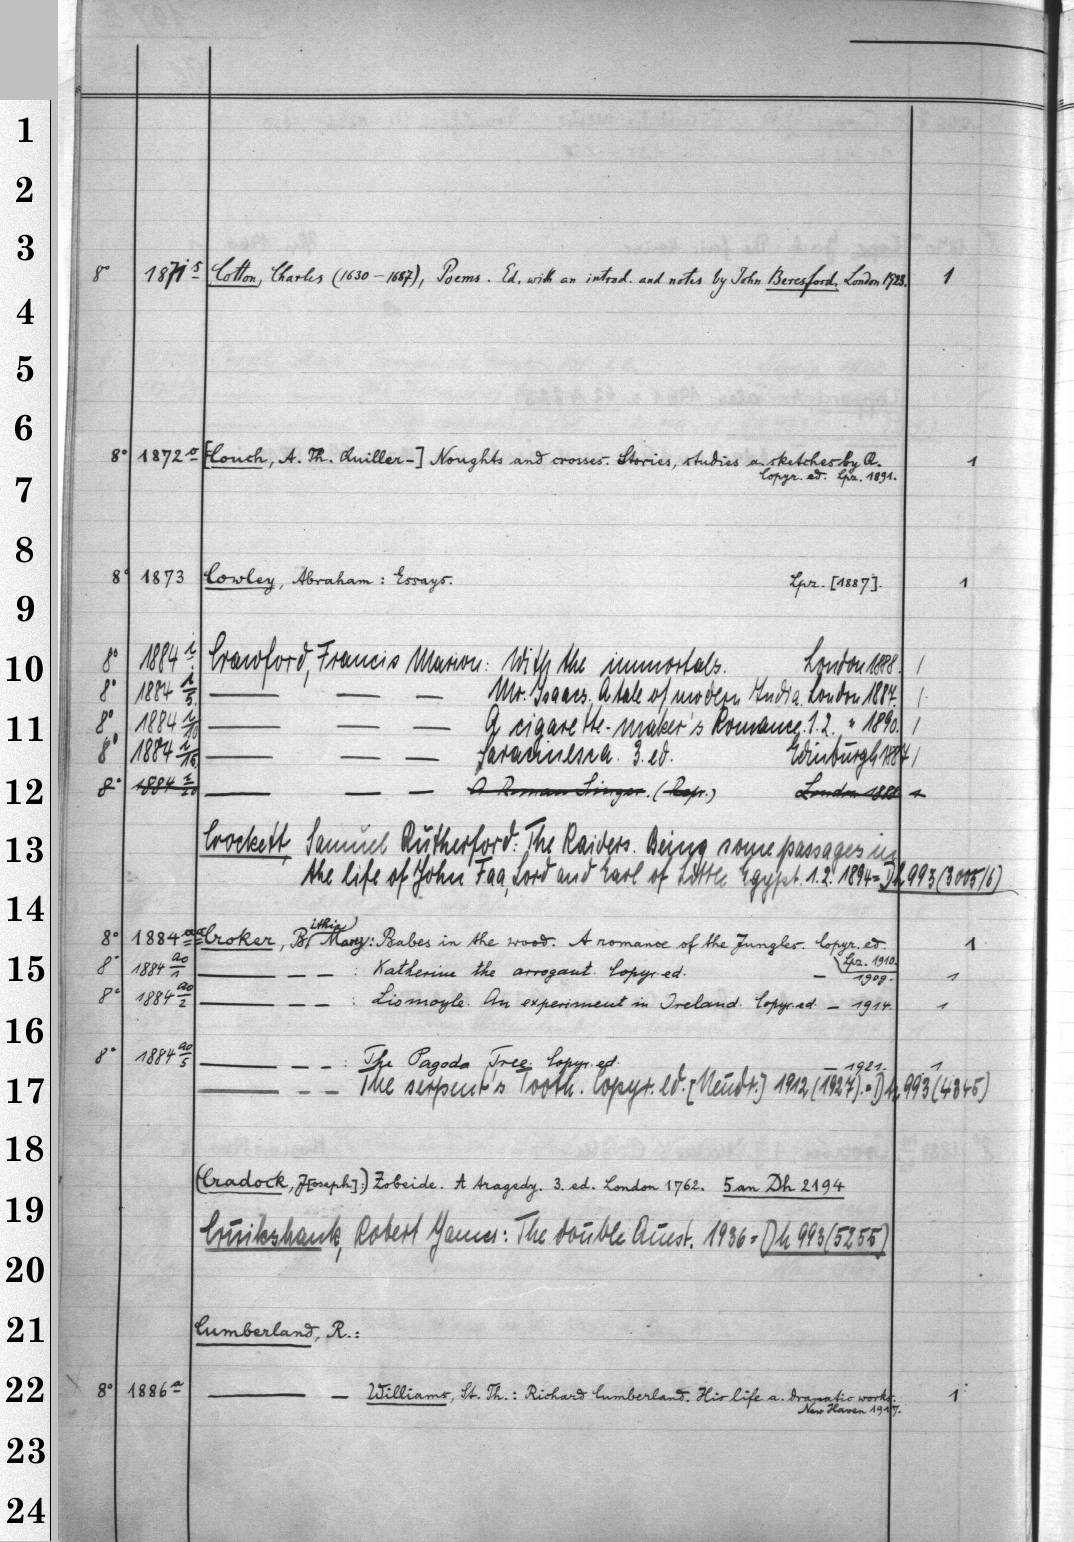 1
2
3
8° 1871 s Cotton, Charles (1630 – 1687), Poems. Ed. with an introd. and notes by John Beresford. London 1923. 1
4
5
6
8° 1872 [Couch, A. Th. Quiller-] Noughts and crosses. Stories, studies a. sketches by Q. 1
Copyr. ed. Lpz. 1891.
7
8
8° 1873 Cowley, Abraham: Essays. Lpz. [1887]. 1
9
10 8° 1884 i Crawford, Francis Marion: With the immortals. London 1888. 1
8° 1884 i/5 — — — Mr. Isaacs. A tale of modern India. London 1884. 1
11 8° 1884 i/10 — — — A cigarette-maker's Romance. 1.2. " 1890. 1
8° 1884 i/15 — — — Saracinesca. 3. ed. Edinburgh 1887 1
12 8° 1884 i/20 — — — A Roman Singer. (Repr.) London 1888 1
13 Crockett, Samuel Rutherford: The Raiders. Being some passages in
the life of John Faa, Lord and Earl of Little Egypt. 1.2. 1894 = Dh 993 (3005/6)
14
8° 1884 aa Croker, B[ithia] Mary: Babes in the wood. A romance of the Jungles. Copyr. ed. 1
Lpz. 1910.
15 8° 1884 ao/1 — – – : Katherine the arrogant. Copyr. ed. – 1909. 1
8° 1884 ao/2 — – – : Lismoyle. An experiment in Ireland. Copyr. ed. – 1914. 1
16
8° 1884 ao/5 — – – : The Pagoda Tree. Copyr. ed. – 1921. 1
17 — – – The serpent's Tooth. Copyr. ed. [Neudr.] 1912 (1927). = Dh 993 (4345)
18
(Cradock, J[oseph]:) Zobeide. A tragedy. 3. ed. London 1762. 5 an Dh 2194
19
Cruikshank, Robert James: The double Quest. 1936 = Dh 993 (5255)
20
21 Cumberland, R.:
22 8° 1886 a — – Williams, St. Th.: Richard Cumberland. His life a. dramatic works. 1
New Haven 1917.
23
24